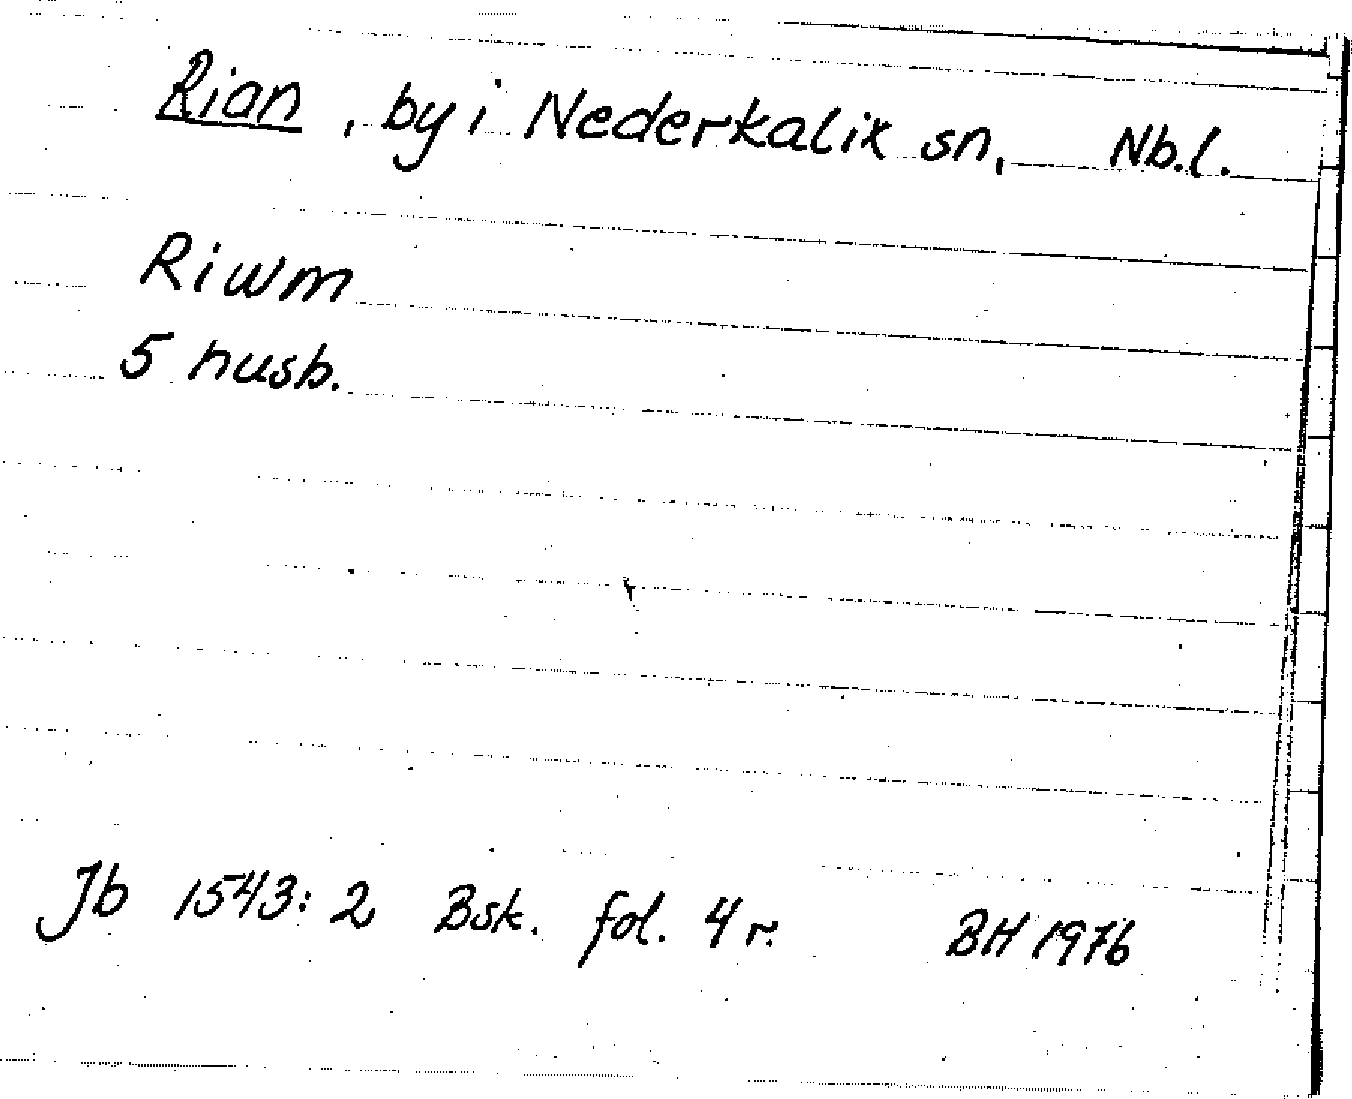 Rian, by i Nederkalix sn, Nb.l.
Riwm
5 husb.
Jb 1543:2 Bsk. fol. 4 r. BH 1976